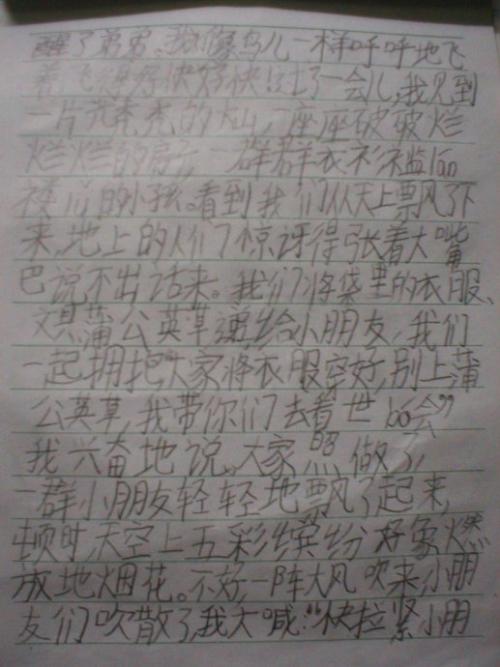 醒了弟弟。我们像鸟儿一样呼呼地飞
着飞得好快好快过了一会儿,我见到
一片光秃秃的大山,座座破破烂
烂烂的房子,一群群衣衫褴lan
褛lü的小孩。看到我们从天上票风了下
来,地上的人们了惊讶得张着大嘴
巴说不出话来。我们将袋里的衣服、
文具蒲公英草递给小朋友,我们
一起拥抱"大家将衣服穿好,别上蒲
公英草,我带你们去看世bo会"
我兴奋地说。大家照做了,
一群小朋友轻轻地飘了起来,
顿时,天空上五彩缤纷好象燃
放地烟花。不好,一阵大风吹来,小朋
友们吹散了,我大喊:"快拉紧小朋